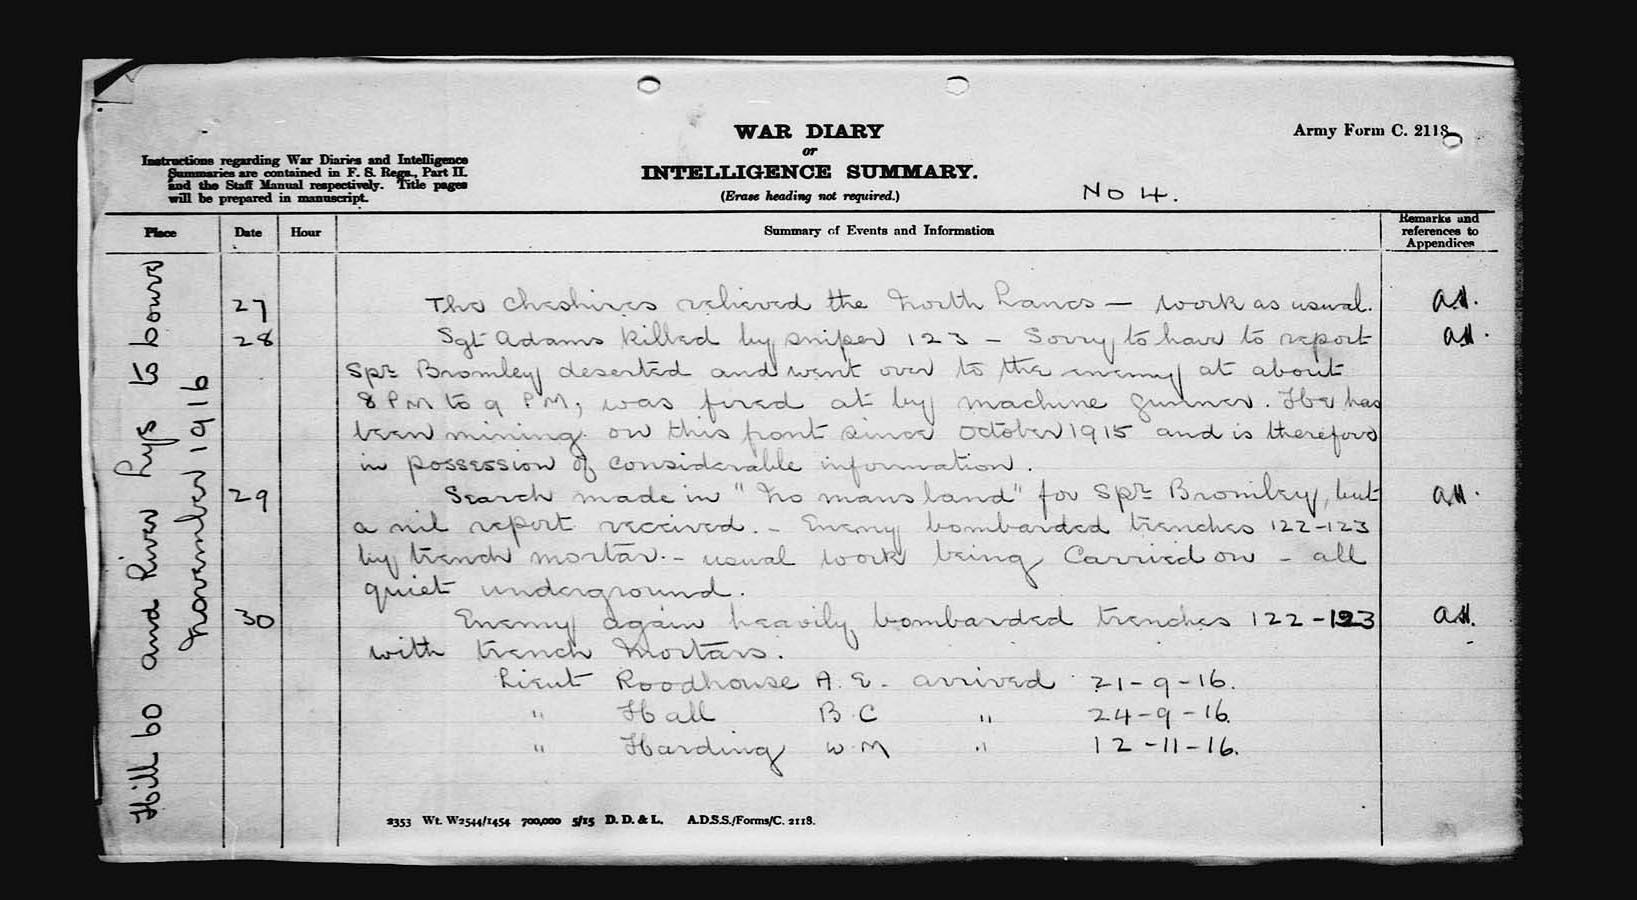 WAR DIARY
or
INTELLIGENCE SUMMARY.
(Erase heading not required.)
Army Form C. 2118.
Instructions regarding War Diaries and Intelligence
Summaries are contained in F. S. Regs., Part II.
and the Staff Manual respectively. Title pages
will be prepared in manuscript.
No 4.
Place Date Hour Summary of Events and Information Remarks and
references to
Appendices
Hill 60 and River Lys to
November 1916
27 The Cheshires relieved the North Lancs — work as usual.
28 Sgt Adams killed by sniper 123 — Sorry to have to report
Spr Bromley deserted and went over to the enemy at about
8 PM to 9 PM, was fired at by machine gunner. He has
been mining on this front since October 1915 and is therefore
in possession of considerable information.
29 Search made in "No mans land" for Spr Bromley, but
a nil report received. - Enemy bombarded trenches 122-123
by trench mortar. - usual work being carried on - all
quiet underground.
30 Enemy again heavily bombarded trenches 122-123
with trench Mortars.
Lieut Roodhouse A. E. arrived 21-9-16.
" Hall B C " 24-9-16.
" Harding W M " 12-11-16.
2353 Wt. W2544/1454 700,000 5/15 D. D. & L. A.D.S.S./Forms/C. 2118.